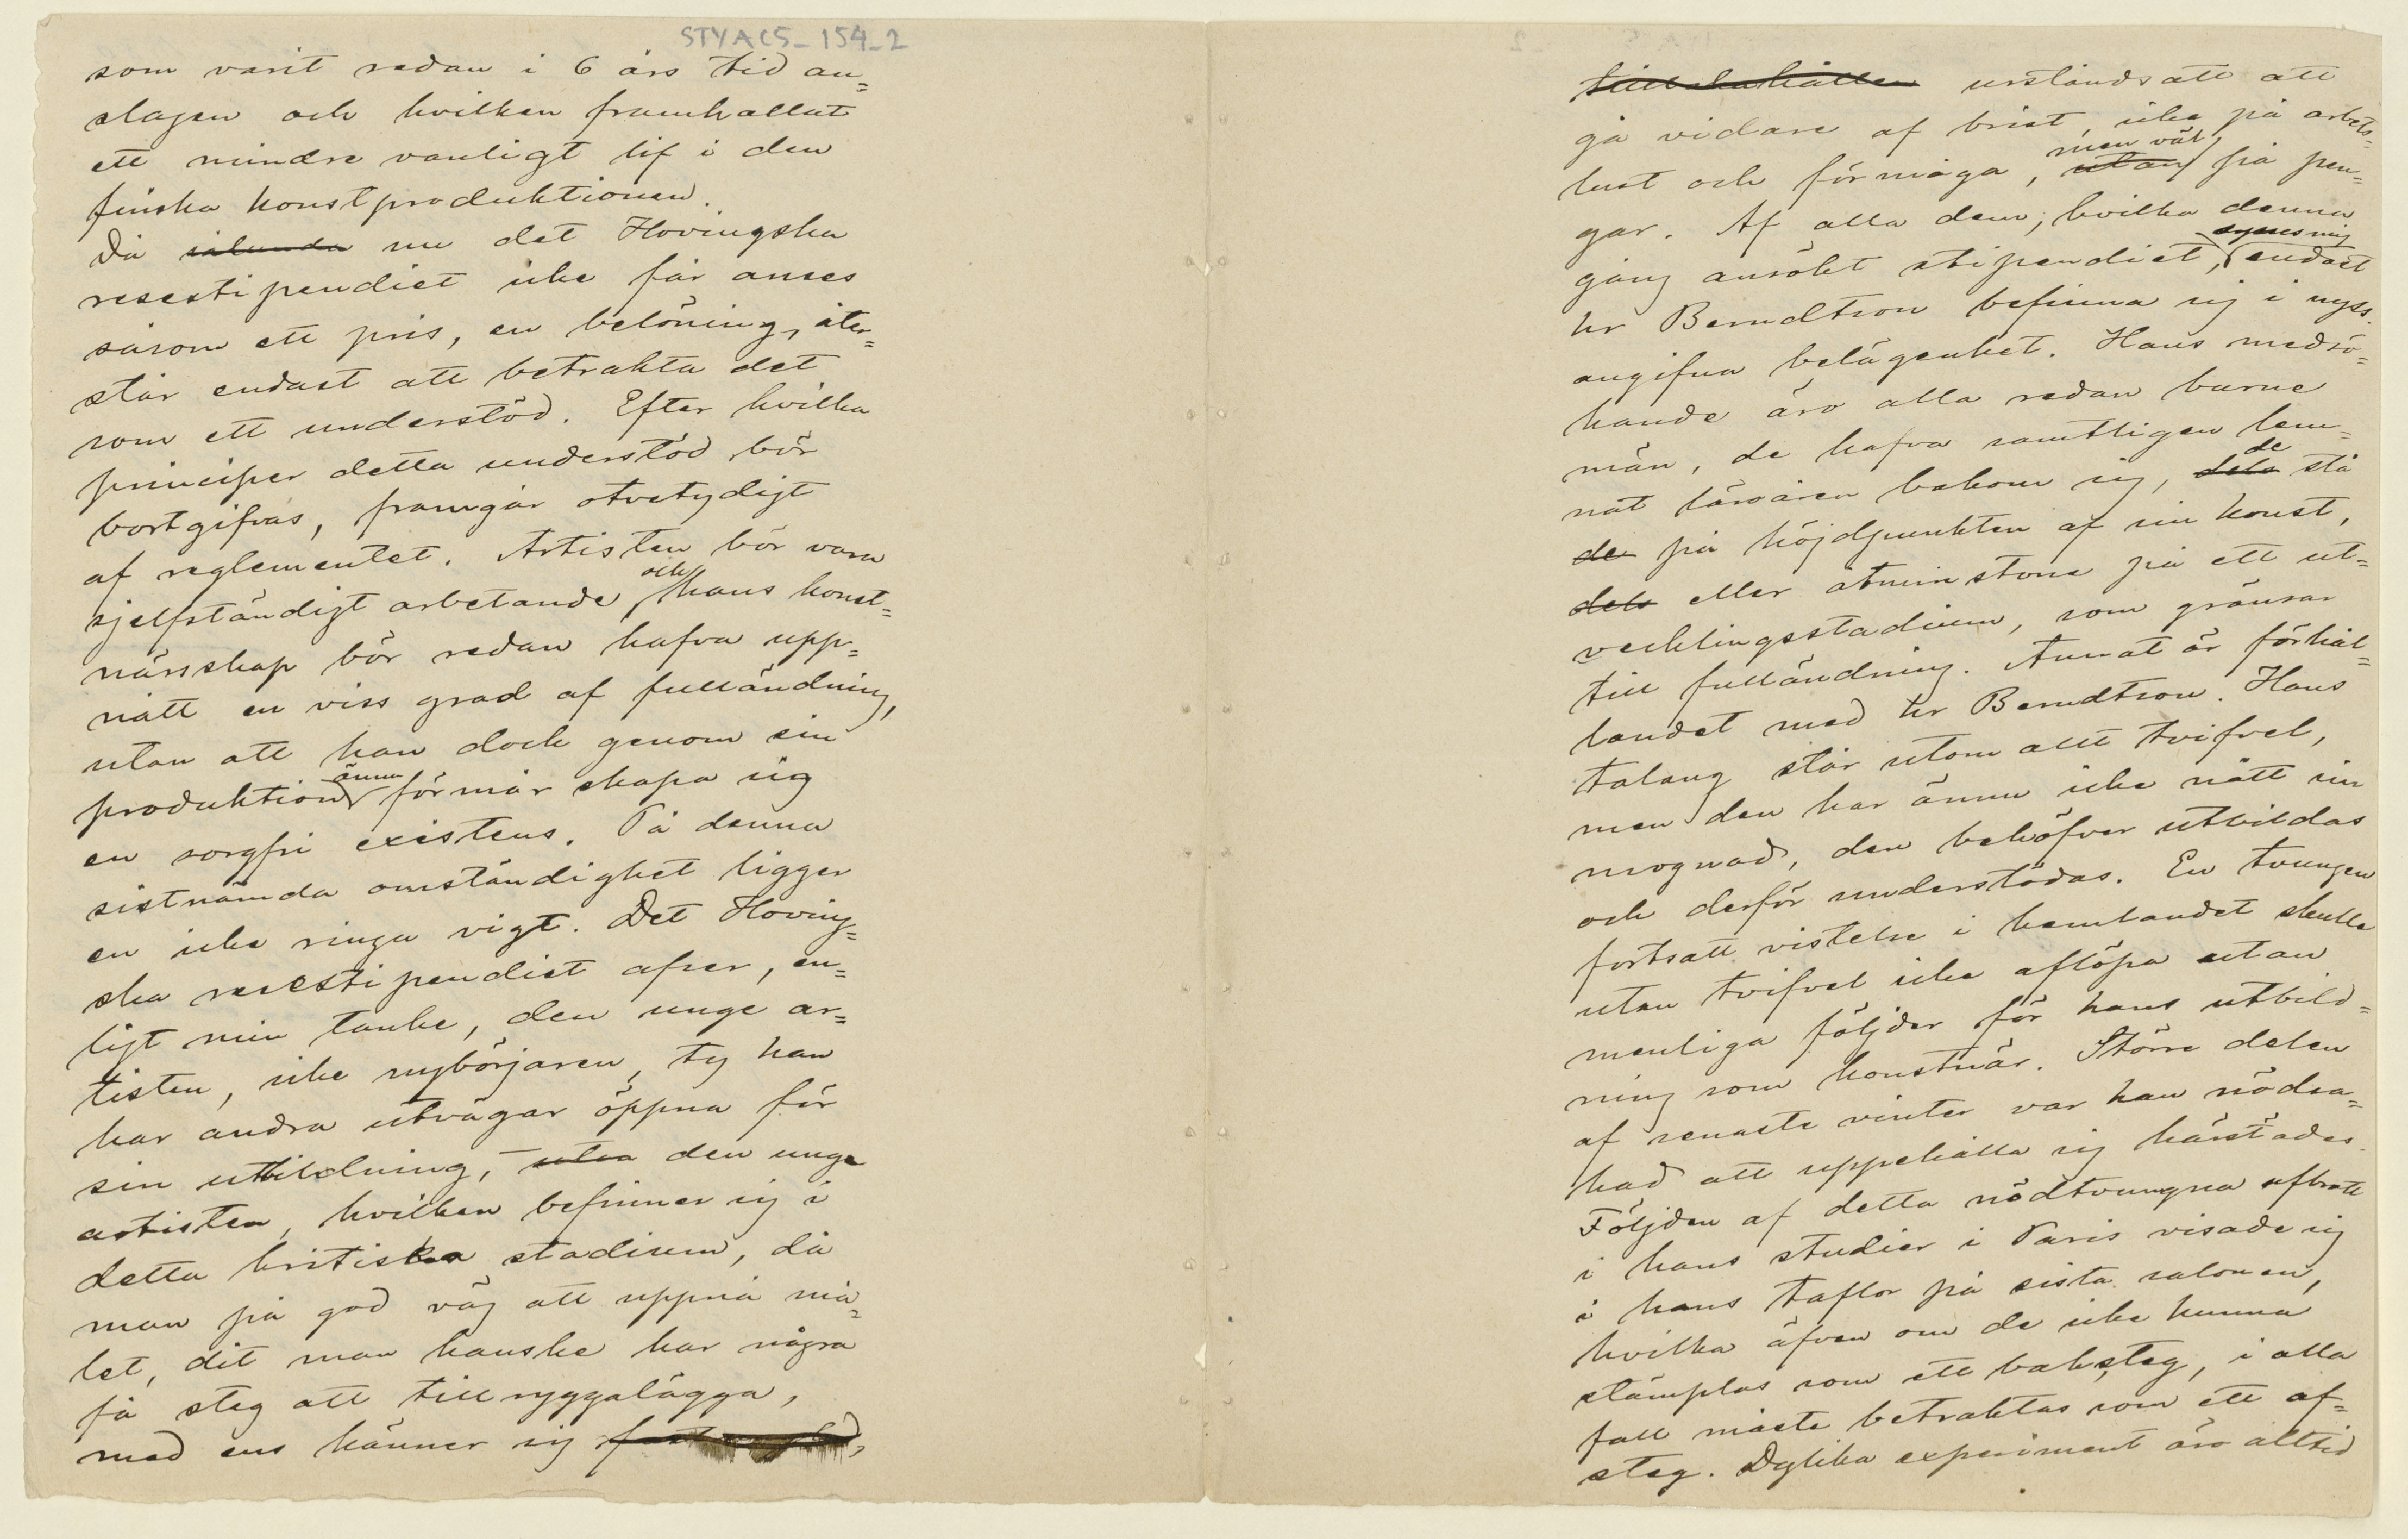 STYACS_154_2
som varit redan i 6 års tid an=
slagen och hvilken framkallat
ett mindre vanligt lif i den
finska konstproduktionen.
Då sålunda nu det Hovingska
resestipendiet icke får anses
såsom ett pris, en belöning, åter=
står endast att betrakta det
som ett understöd. Efter hvilka
principer detta understöd bör
bortgifvas, framgår otvetydigt
af reglementet. Artisten bör vara
sjelfständigt arbetande, och hans konst=
närsskap bör redan hafva upp=
nått en viss grad af fulländning,
utan att han dock genom sin
produktion ännu förmår skapa sig
en sorgfri existens. På denna
sistnämda omständighet ligger
en icke ringa vigt. Det Hoving=
ska resestipendiet afser, en=
ligt min tanke, den unge ar=
tisten, icke nybörjaren, ty han
har andra utvägar öppna för
sin utbildning, – utan den unge
artisten, hvilken befinner sig i
detta kritiska stadium, då
man på god väg att uppnå må=
let, dit man kanske har några
få steg att tillryggalägga,
med ens känner sig
urståndsatt att
gå vidare af brist, icke på arbets=
lust och förmåga, utan men väl på pen=
gar. Af alla dem, hvilka denna
gång ansökt stipendiet, synes mig endast
hr Berndtson befinna sig i nyss
angifna belägenhet. Hans medsö=
kande äro alla redan burne
män, de hafva samtligen lem=
nat läroåren bakom sig, dels de stå
de på höjdpunkten af sin konst,
dels eller åtminstone på ett ut=
vecklingsstadium, som gränsar
till fulländning. Annat är förhål=
landet med hr Berndtson. Hans
talang står utom allt tvifvel,
men den har ännu icke nått sin
mognad, den behöfver utbildas
och derför understödas. En tvungen
fortsatt vistelse i hemlandet skulle
utan tvifvel icke aflöpa utan
menliga följder för hans utbild=
ning som konstnär. Större delen
af senaste vinter var han nödsa=
kad att uppehålla sig härstädes.
Följden af detta nödtvungna afbrott
i hans studier i Paris visade sig
i hans taflor på sista salonen,
hvilka äfven om de icke kunna
stämplas som ett baksteg, i alla
fall måste betraktas som ett af=
steg. Dylika experiment äro alltid